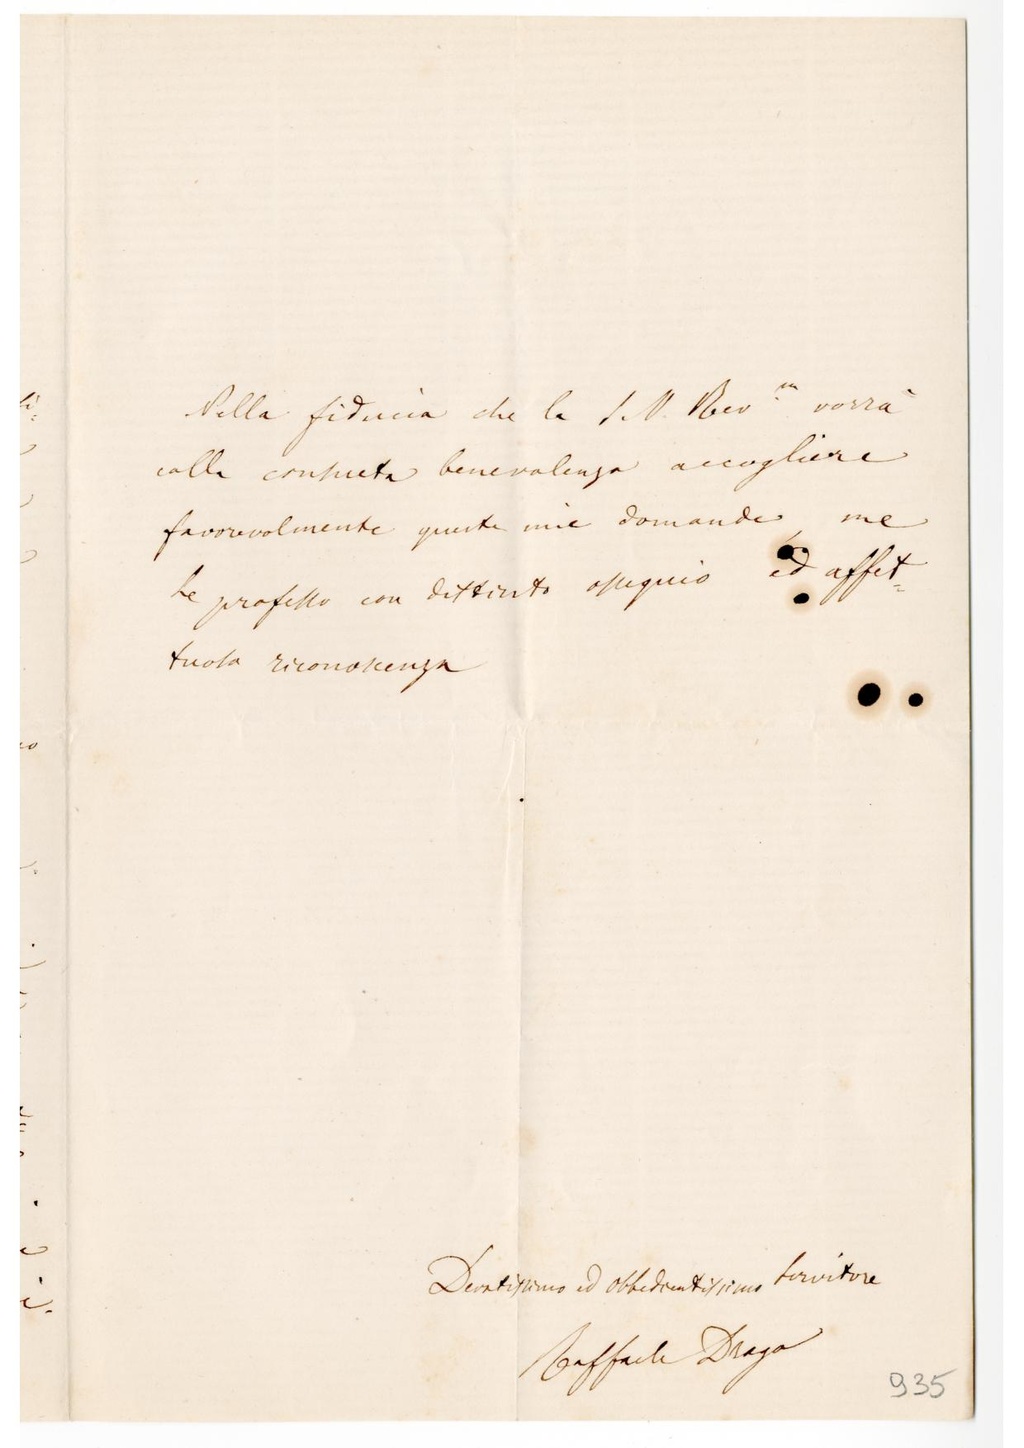 Nella fiducia che la S. V. Rev.ma vorrà
colla consueta benevolenza accogliere
favorevolmente queste mie domande, me
Le professo con distinto ossequio ed affet-
tuosa riconoscenza
Devotissimo ed obbedientissimo servitore
Raffaele Drago
935